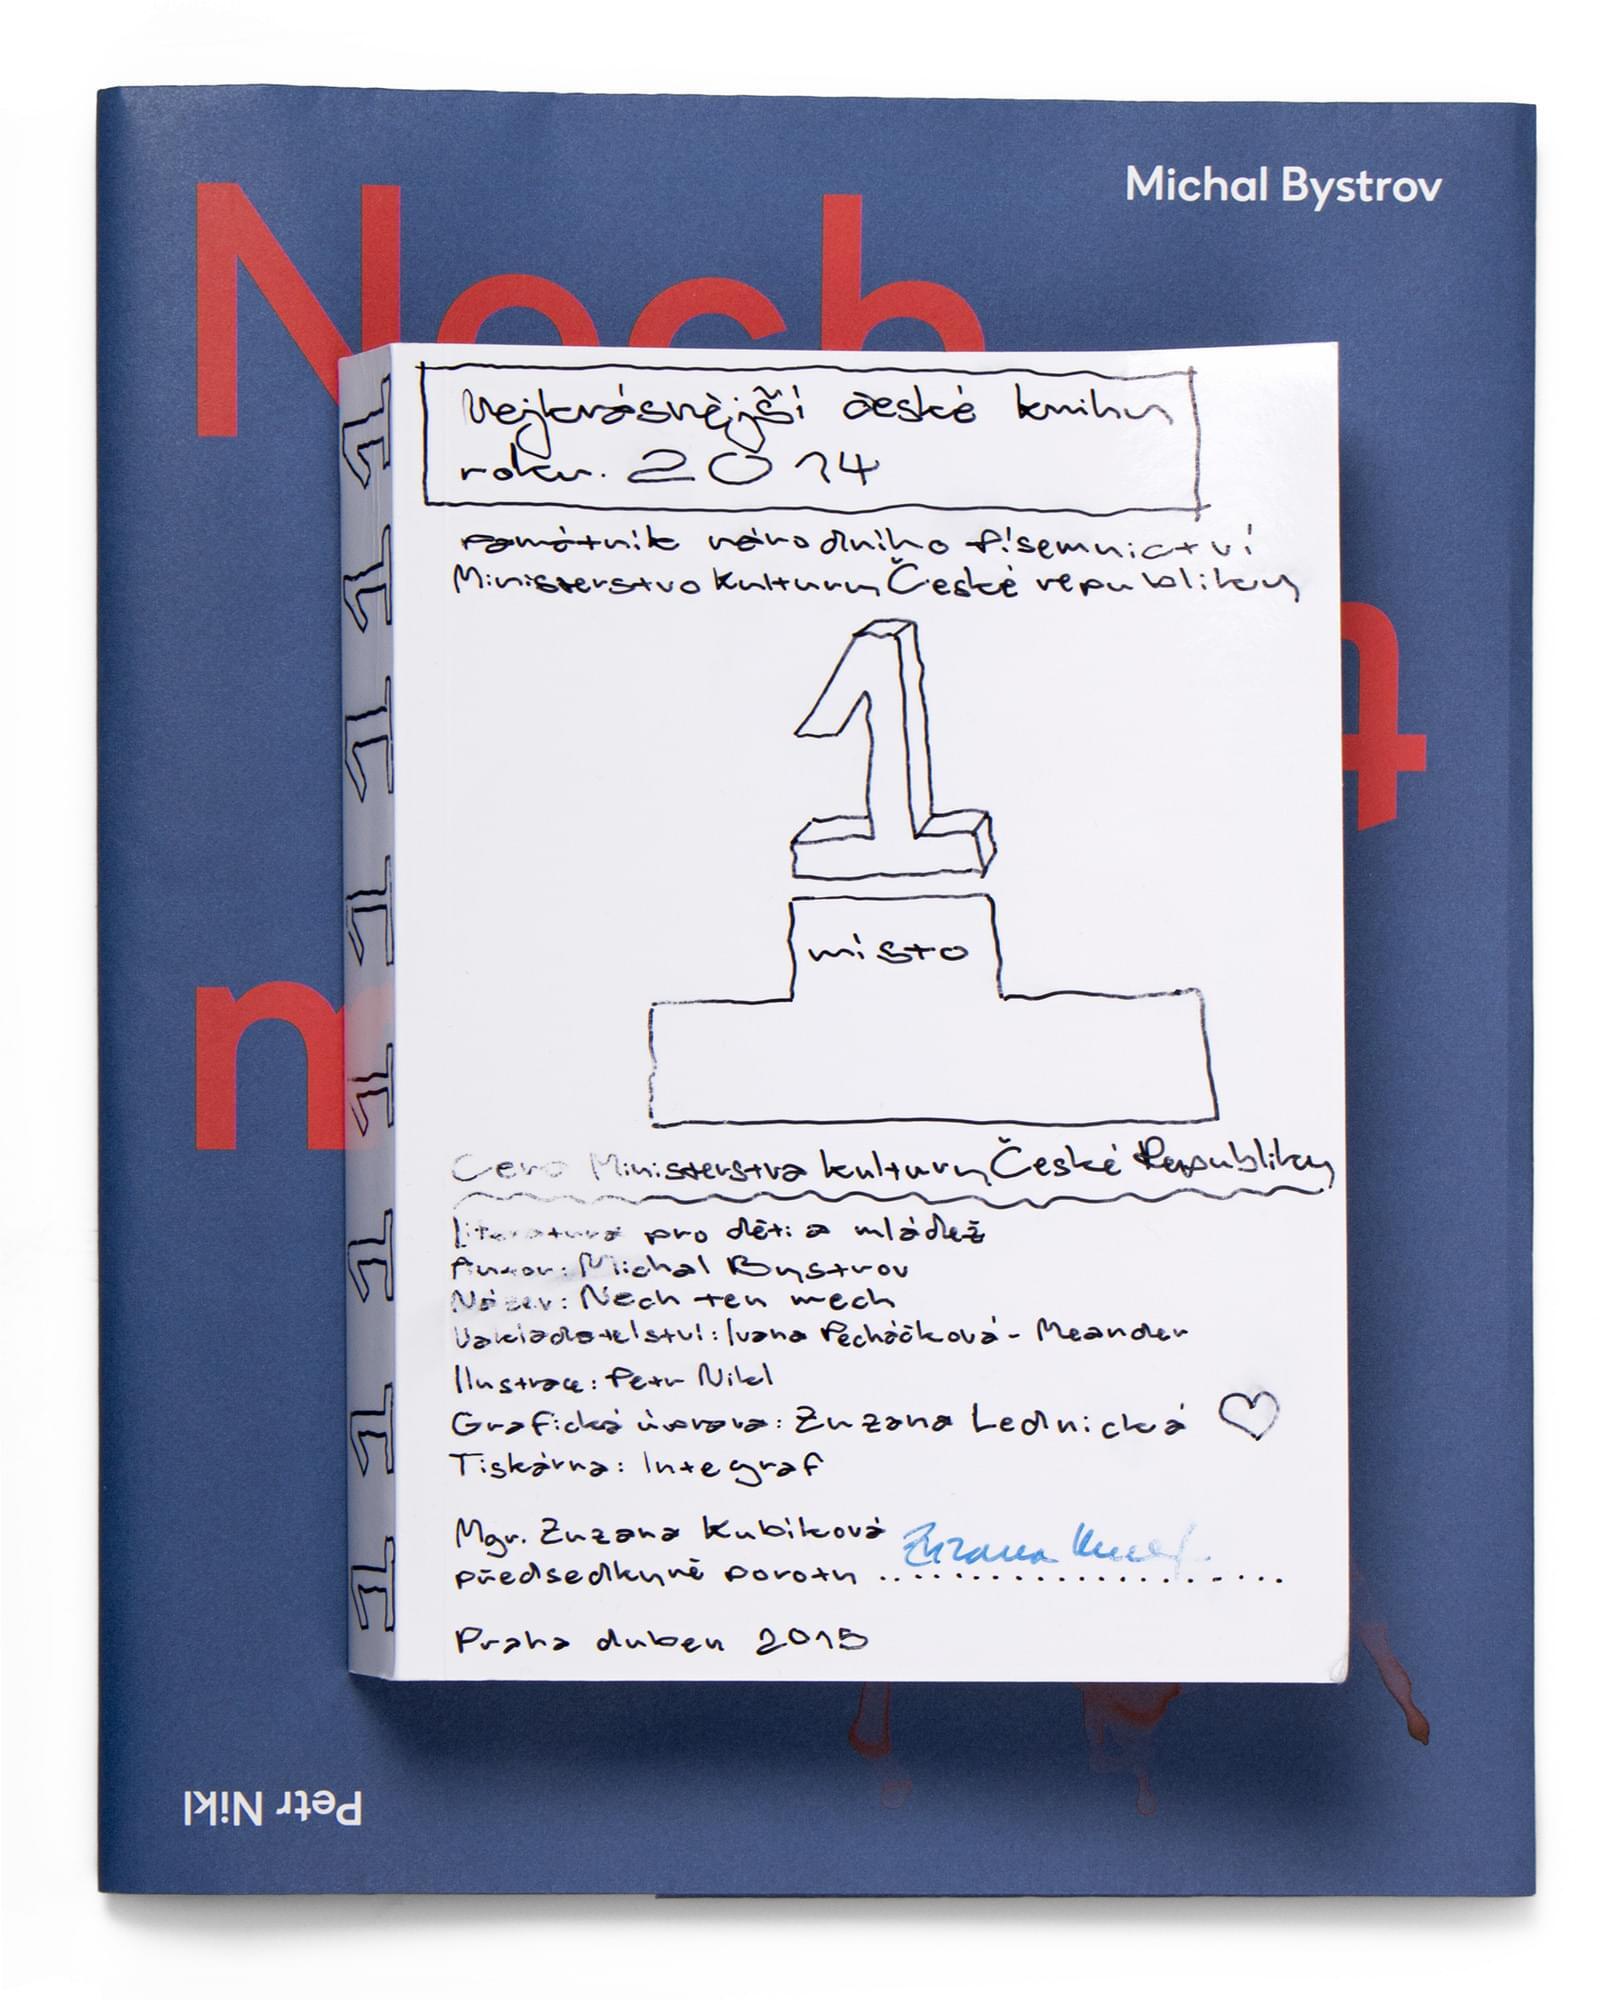 Michal Bystrov
Nech
m
Nejkrásnější české knihy
roku 2014
památník národního písemnictví
Ministerstvo kultury České republiky
1
místo
Cena Ministerstva kultury České Republiky
Literatura pro děti a mládež
Autor: Michal Bystrov
Název: Nech ten mech
Nakladatelství: Ivana Pecháčková - Meander
Ilustrace: Petr Nikl
Grafická úprava: Zuzana Lednická
Tiskárna: Integraf
Mgr. Zuzana Kubíková
předsedkyně poroty ......................
Zuzana
Praha duben 2015
1 1 1 1 1 1 1 1
Petr Nikl